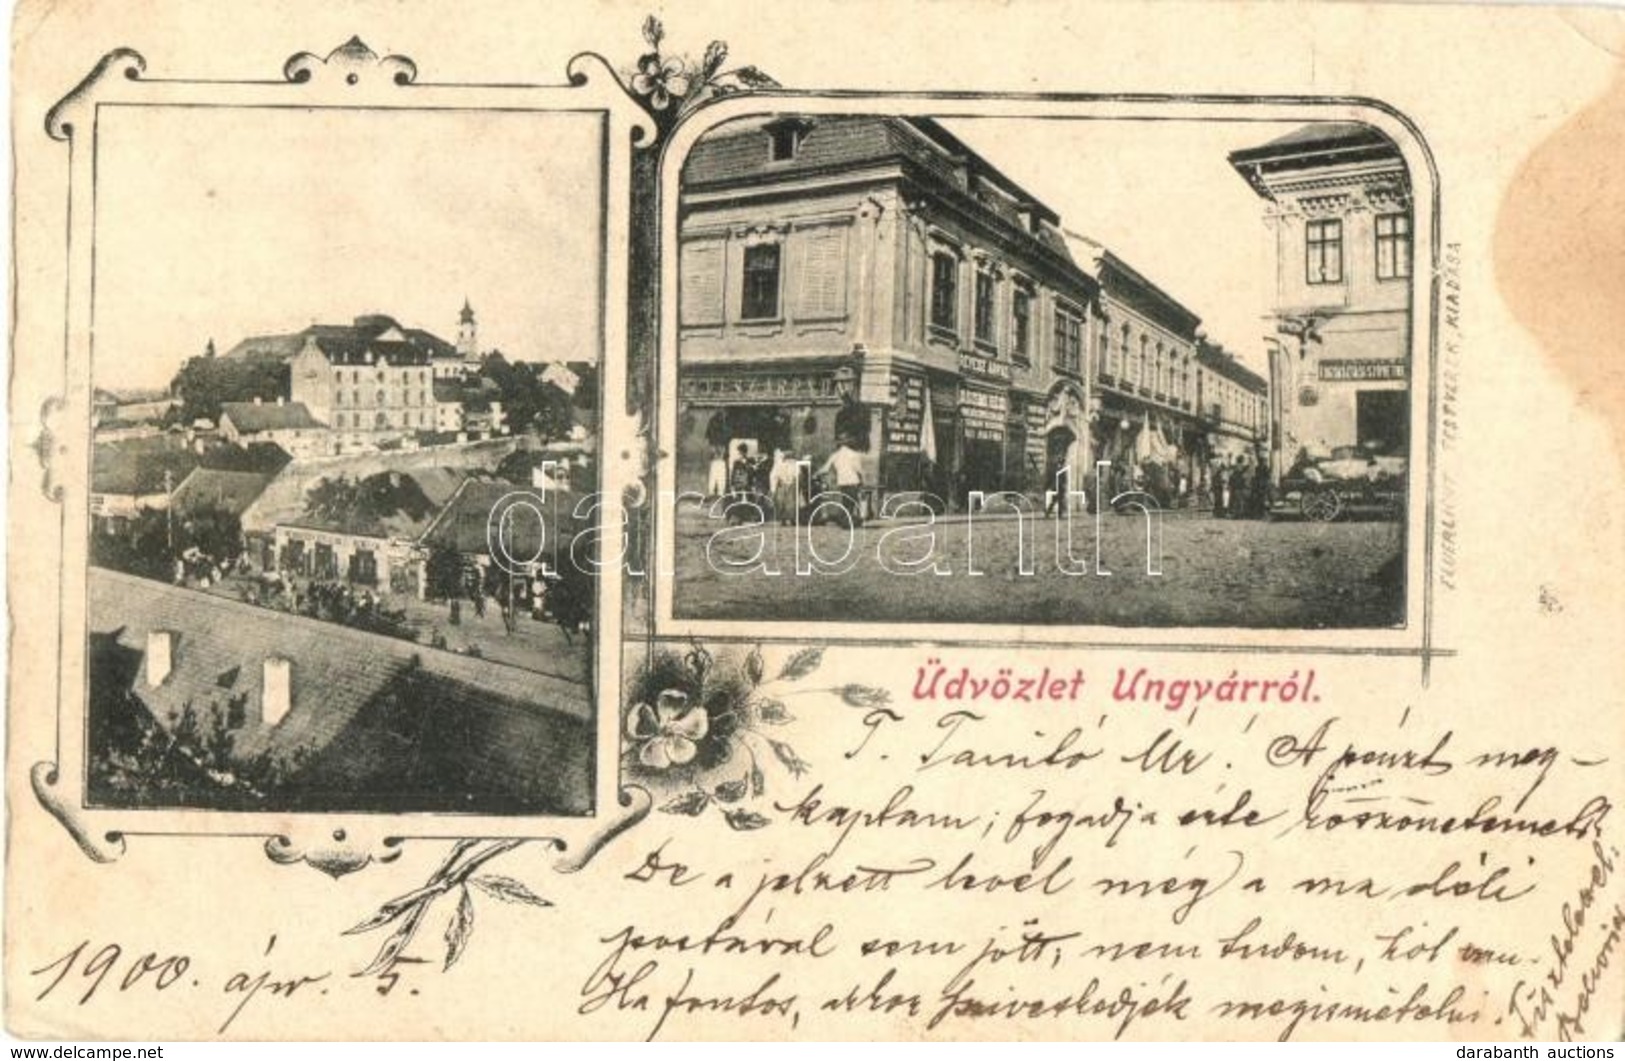 ESZ ÁRPÁD
Üdvözlet Ungvárról.
T. Tanító Úr! A pénzt meg-
kaptam; fogadja érte köszönetemet.
De a jelzett levél még a ma déli
postával sem jött; nem tudom, hol van.
Ha fontos, akkor sziveskedjék megismételni.
Tisztelettel:
1900. ápr. 5.
TESTVÉREK KIADÁSA
darabanth
www.delcampe.net
darabanth auctions